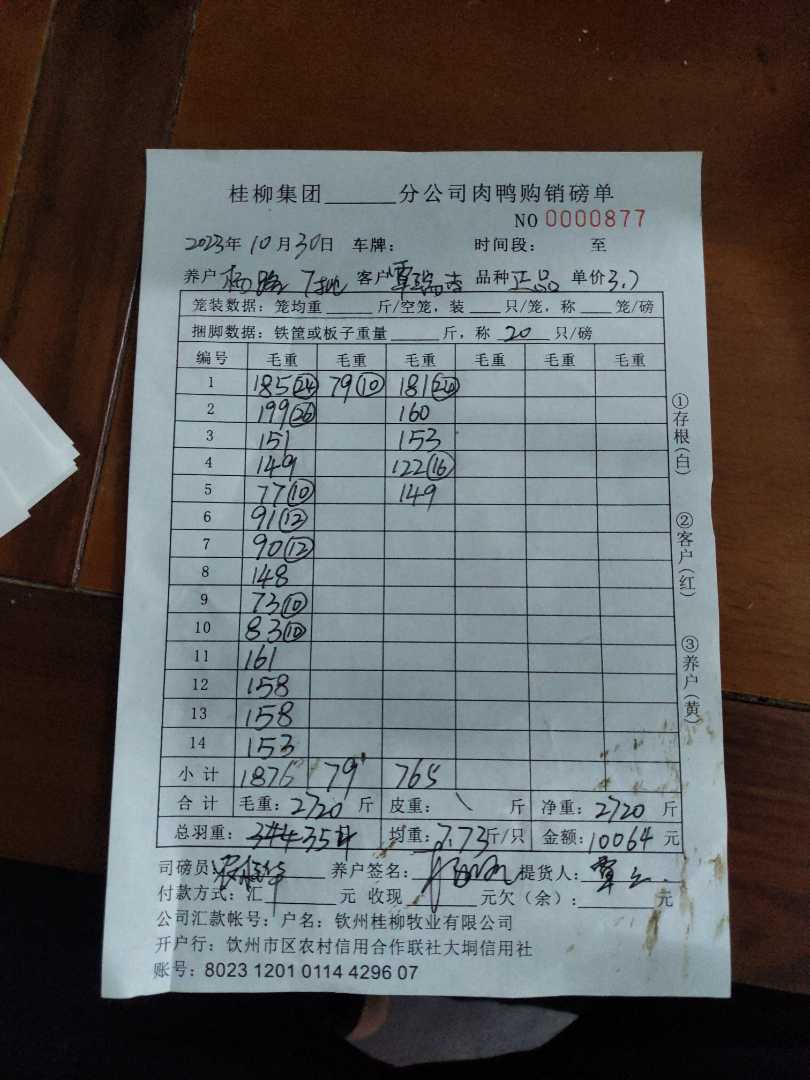 桂柳集团______分公司肉鸭购销磅单
NO 0000877
2023年10月30日 车牌： 时间段： 至
养户 杨 7批 客户 覃瑞吉 品种 正品 单价 3.7
笼装数据：笼均重____斤/空笼，装___只/笼，称___笼/磅
捆脚数据：铁筐或板子重量____斤，称 20 只/磅
编号 毛重 毛重 毛重 毛重 毛重 毛重
1 185(24) 79(10) 181(24)
2 199(26) 160
3 151 153
4 149 122(16)
5 77(10) 149
6 91(12)
7 90(12)
8 148
9 73(10)
10 83(10)
11 161
12 158
13 158
14 153
小计 1876 79 765
合计 毛重：2720斤 皮重：\ 斤 净重：2720斤
总羽重： 均重：7.73斤/只 金额：10064元
司磅员： 养户签名： 提货人：覃
付款方式：汇______元 收现______元欠（余）：______元
公司汇款帐号：户名：钦州桂柳牧业有限公司
开户行：饮州市区农村信用合作联社大垌信用社
账号：8023 1201 0114 4296 07
①存根（白）
②客户（红）
③养户（黄）